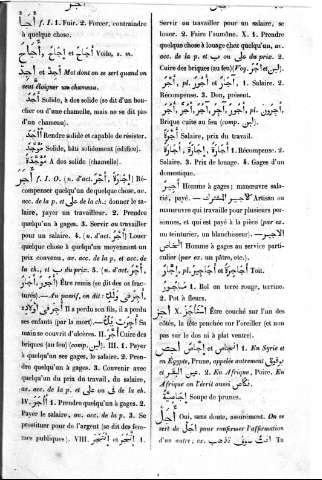 أجأ f. I. 1. Fuir. 2. Forcer, contraindre
à quelque chose.
أجاح et إجاح, أجاح Voile, s. m.
أجد et أجد Mot dont on se sert quand on
veut éloigner un chameau.
أجاد Solide, à dos solide (se dit d'un bouc-
cher ou d'une chamelle, mais ne se dit pas
d'un chameau).
آجد Rendre solide et capable de résister.
مؤجد Solide, bâti solidement (édifice).
مؤجدة A dos solide (chamelle).
أجر f. I. O. (n. d'act. أجر, إجارة) Ré-
compenser quelqu'un de quelque chose, av.
acc. de la p. et على de la ch.; donner le sa-
laire, payer un travailleur. 2. Prendre
quelqu'un à gages. 3. Servir ou travailler
pour un salaire. 4. (n. d'act. أجر) Louer
quelque chose à quelqu'un moyennant un
prix convenu, av. acc. de la p. et acc. de
la ch., et ب du prix. 5. (n. d'act. أجر,
أجور) Être remis (se dit des os frac-
turés).—Au passif, on dit:
Il a perdu son fils, il a perdu
ses enfants (par la mort). أجرت يده Sa
main se couvrit d'aloiron. II. أجر Cuire des
briques (au feu) (comp. لبن). III. 1. Payer
à quelqu'un ses gages, le salaire. 2. Pren-
dre quelqu'un à gages. 3. Convenir avec
quelqu'un du prix du travail, du salaire,
av. acc. de la p. et على ou في de la ch.
IV. آجر 1. Prendre quelqu'un à gages. 2.
Payer le salaire, av. acc. de la p. 3. Se
prostituer pour de l'argent (se dit des fem-
mes publiques). VIII. إيتجر et إتجر 1.
Servir ou travailler pour un salaire, se
louer. 2. Faire l'aumône. X. 1. Prendre
quelque chose à louage chez quelqu'un, av.
acc. de la p. et ب ou على du prix. 2.
Cuire des briques (au feu) (Voy. أجر et لبن).
أجر, pl. أجور, آجار 1. Salaire. 2.
Récompense. 3. Don, présent.
آجر, آجر, آجور, أجور, pl. آجرون
Brique cuite au feu (comp. لبن).
أجرة Salaire, prix du travail.
إجارة, أجارة, أجارة 1. Récompense. 2.
Salaire. 3. Prix de louage. 4. Gages d'un
domestique.
أجير Homme à gages; manœuvre sala-
rié, payé. — الأجير المشترك Artisan ou
manœuvre qui travaille pour plusieurs per-
sonnes, et qui est payé à la pièce (par ex.
un teinturier, un blanchisseur). — الأجير
الخاص Homme à gages au service parti-
culier (par ex. un pâtre, etc.).
إجار, pl. أجاجرة et أجاجير Toit.
مأجور 1. Bol en terre rouge, terrine.
2. Pot à fleurs.
أجز X. استأجز Être couché sur l'un des
côtés, la tête penchée sur l'oreiller (et non
pas sur le dos ni à plat ventre).
إجاص et إنجاص 1. En Syrie et
en Egypte, Prune, appelée autrement برقوق
et عين البقر. 2. En Afrique, Poire. En
Afrique on l'écrit aussi نجاص.
إجاصية Soupe de prunes.
أجل Oui, sans doute, assurément. On se
sert de أجل pour confirmer l'affirmation
d'un autre; ex. أنت سوف تذهب Tu